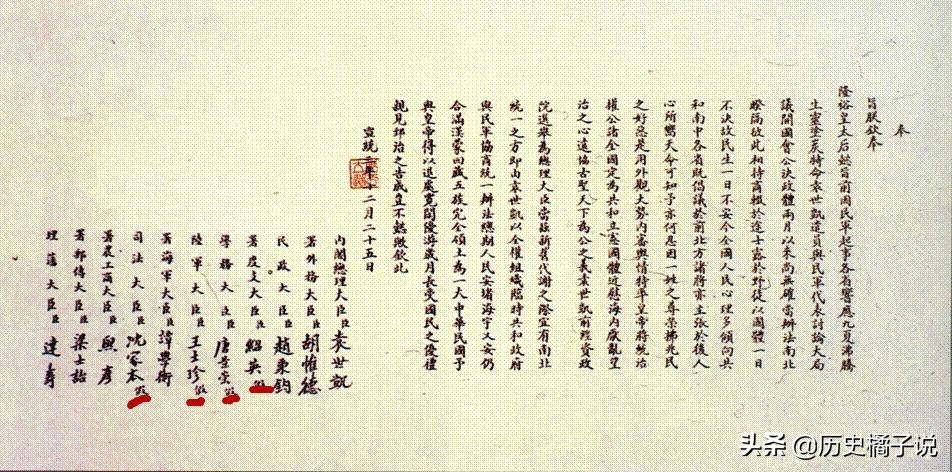 奉
旨朕欽奉
隆裕皇太后懿旨前因民軍起事各省響應九夏沸騰
生靈塗炭特命袁世凱遣員與民軍代表討論大局
議開國會公決政體兩月以來尚無確當辦法南北
暌隔彼此相持商輟於途士露於野徒以國體一日
不決故民生一日不安今全國人民心理多傾向共
和南中各省既倡議於前北方諸將亦主張於後人
心所嚮天命可知予亦何忍因一姓之尊榮拂兆民
之好惡是用外觀大勢內審輿情特率皇帝將統治
權公諸全國定為共和立憲國體近慰海內厭亂望
治之心遠協古聖天下為公之義袁世凱前經資政
院選舉為總理大臣當茲新舊代謝之際宜有南北
統一之方即由袁世凱以全權組織臨時共和政府
與民軍協商統一辦法總期人民安堵海宇乂安仍
合滿漢蒙回藏五族完全領土為一大中華民國予
與皇帝得以退處寬閒優游歲月長受國民之優禮
親見郅治之告成豈不懿歟欽此
宣統三年十二月二十五日
內閣總理大臣臣袁世凱
署外務大臣臣胡惟德
民政大臣臣趙秉鈞
署度支大臣臣紹英假
學務大臣臣唐景崇假
陸軍大臣臣王士珍假
署海軍大臣臣譚學衡
司法大臣臣沈家本假
署農工商大臣臣熙彥
署郵傳大臣臣梁士詒
理藩大臣臣達壽
头条 @历史橘子说